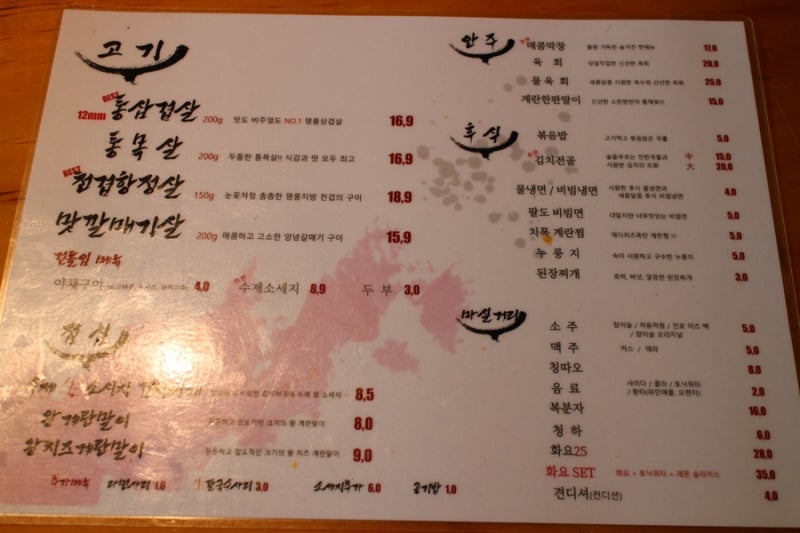 고기
BEST
12mm 통삼겹살 200g 맛도 비주얼도 NO.1 명품삼겹살 16,9
통목살 200g 두툼한 통목살!! 식감과 맛 모두 최고 16,9
BEST
천겹항정살 150g 눈꽃처럼 촘촘한 명품지방 천겹의 구이 18,9
맛깔매기살 200g 매콤하고 고소한 양념갈매기 구이 15,9
곁들임 메뉴
야채구이 4,0 수제소세지 8,9 두부 3,0
점심
소세지 8,5
왕계란말이 든든하고 압도적인 크기의 왕 계란말이 8,0
왕치즈계란말이 든든하고 압도적인 크기의 왕 치즈 계란말이 9,0
추가메뉴 라면사리 1.0 칼국수사리 3.0 소세지추가 6.0 공기밥 1.0
안주
매콤막창 불향 가득한 술겨진 반메뉴 17,0
육회 당일직접한 신선한 육회 20,0
물육회 새콤달콤 시원한 육수와 신선한 육회 25,0
계란한판말이 15,0
후식
볶음밥 고기먹고 볶음밥은 국룰 5,0
김치전골 술을부르는 진한국물과 시원한 김치의 조화 中 15,0
大 20,0
물냉면 / 비빔냉면 시원한 후식 물냉면과 새콤달콤 후식 비빔냉면 4,0
팔도 비빔면 대말지면 너무맛있는 비빔면 5,0
치폭 계란찜 체다치즈폭탄 계란찜 !!! 5,0
누룽지 속이 시원하고 구수한 누룽지 5,0
된장찌개 호박, 버섯, 깔끔한 된장찌개 3,0
마실거리
소주 참이슬 / 처음처럼 / 진로 이즈 백 / 참이슬 오리지날 5,0
맥주 카스 / 테라 5,0
칭따오 8,0
음료 사이다 / 콜라 / 토닉워터 / 환타(파인애플, 오렌지) 2,0
복분자 16,0
청하 6,0
화요25 28,0
화요 SET 화요 + 토닉워터 + 레몬 슬라이스 35,0
견디셔(컨디션) 4,0